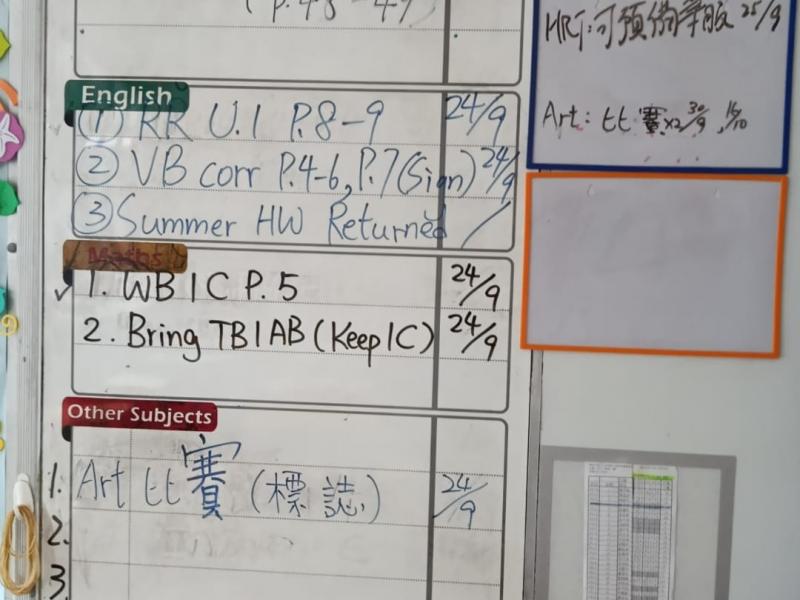 (P.48-49)
English
① RR U.1 P.8-9 24/9
② VB corr P.4-6, P.7(Sign) 24/9
③ Summer HW Returned /
Maths
✓ 1. WB 1C P.5 24/9
2. Bring TB1AB (Keep 1C) 24/9
Other Subjects
1. Art 比賽 (標誌) 24/9
2.
3.
HRT: 可預備華服 25/9
Art: 比賽x2 30/9, 16/10